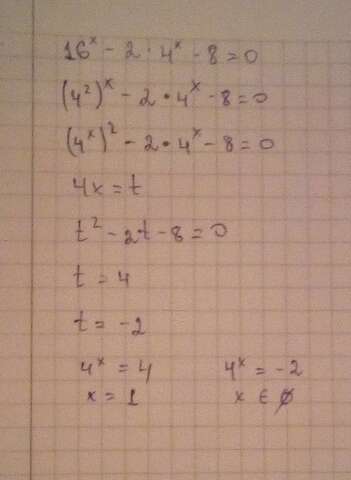 16ˣ - 2 · 4ˣ - 8 = 0
(4²)ˣ - 2 · 4ˣ - 8 = 0
(4ˣ)² - 2 · 4ˣ - 8 = 0
4x = t
t² - 2t - 8 = 0
t = 4
t = -2
4ˣ = 4 4ˣ = -2
x = 1 x ∈ ∅